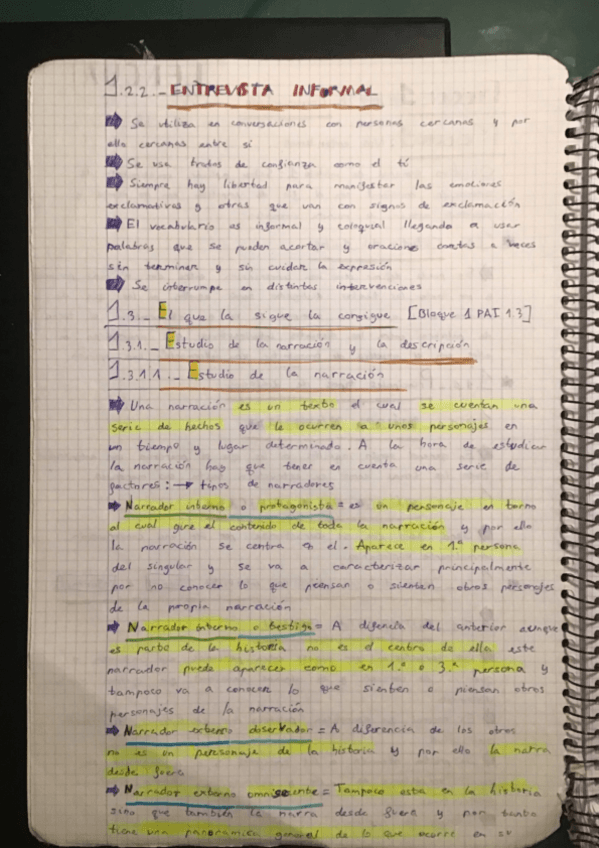 1.2.2.- ENTREVISTA INFORMAL
Se utiliza en conversaciones con personas cercanas y por
ello cercanas entre sí
Se usa tratos de confianza como el tú
Siempre hay libertad para manifestar las emociones
exclamativas y otras que van con signos de exclamación
El vocabulario es informal y coloquial llegando a usar
palabras que se pueden acortar y oraciones a veces
sin terminar y sin cuidar la expresión
Se interrumpe en distintas intervenciones
1.3.- El que la sigue la consigue [Bloque 1 PAI 1.3]
1.3.1.- Estudio de la narración y la descripción
1.3.1.1.- Estudio de la narración
Una narración es un texto el cual se cuentan una
serie de hechos que le ocurren a unos personajes en
un tiempo y lugar determinado. A la hora de estudiar
la narración hay que tener en cuenta una serie de
factores: → tipos de narradores
Narrador interno o protagonista = es un personaje en torno
al cual gira el contenido de toda la narración y por ello
la narración se centra en el. Aparece en 1.ª persona
del singular y se va a caracterizar principalmente
por no conocer lo que piensan o sienten otros personajes
de la propia narración
Narrador interno o testigo = A difencia del anterior aunque
es parte de la historia no es el centro de ella este
narrador puede aparecer como en 1.ª o 3.ª persona y
tampoco va a conocer lo que sienten o piensan otros
personajes de la narración
Narrador externo observador = A diferencia de los otros
no es un personaje de la historia y por ello la narra
desde fuera
Narrador externo omnisciente = Tampoco esta en la historia
sino que también la narra desde fuera y por tanto
tiene una panoramica general de lo que ocurre en su